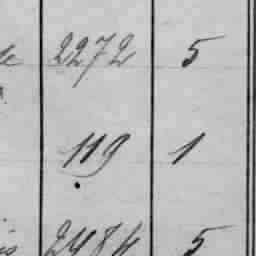 2272 5
119 1
2484 5